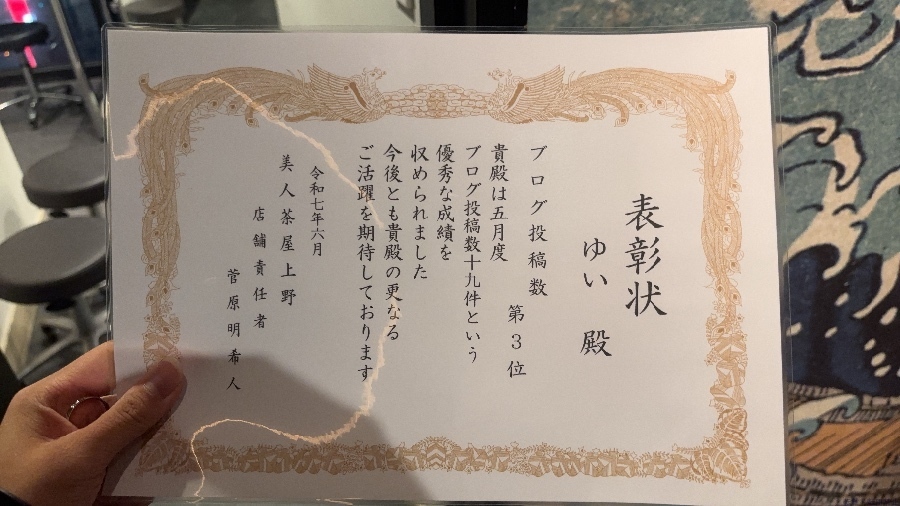 表彰状
ゆい 殿
ブログ投稿数
第3位
貴殿は五月度
ブログ投稿数十九件という
優秀な成績を
収められました
今後とも貴殿の更なる
ご活躍を期待しております
令和七年六月
美人茶屋上野
店舗責任者
菅原明希人